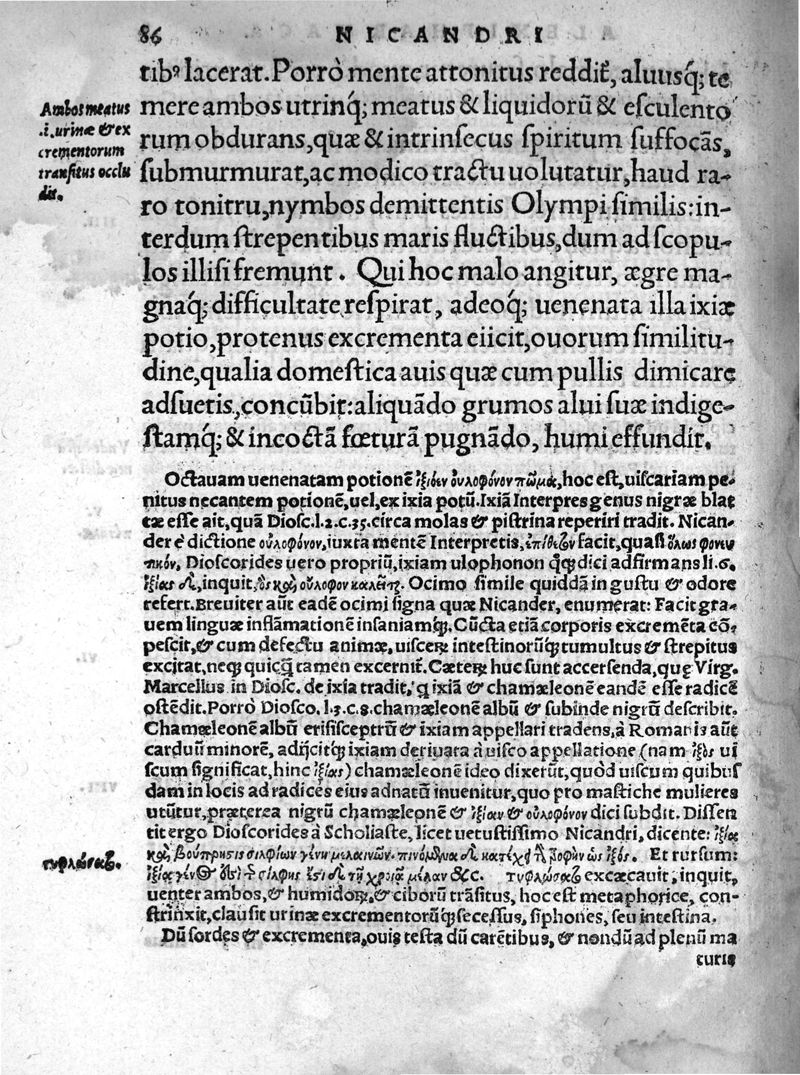 86 NICANDRI
tibꝰ lacerat. Porrò mente attonitus reddit᷑, aluusq́; te
mere ambos utrinq́; meatus & liquidorũ & esculento
rum obdurans, quæ & intrinsecus spiritum suffocãs,
submurmurat, ac modico tractu uolutatur, haud ra-
ro tonitru, nymbos demittentis Olympi similis: in-
terdum strepentibus maris fluctibus, dum ad scopu-
los illisi fremunt. Qui hoc malo angitur, ægre ma-
gnaq́; difficultate respirat, adeoq́; uenenata illa ixiæ
potio, protenus excrementa eiicit, ouorum similitu-
dine, qualia domestica auis quæ cum pullis dimicare
adsuetis, concũbit: aliquãdo grumos alui suæ indige-
stamq́; & incoctã fœturã pugnãdo, humi effundit.
Ambos meatus
.i. urinæ & ex
crementorum
transitus occlu
dit.
Octauam uenenatam potionẽ ἰξιόεν οὐλοφόνον πῶμα, hoc est, uiscariam pe-
nitus necantem potionẽ, uel, ex ixia potũ. Ixiã Interpres genus nigræ blat
tæ esse ait, quã Diosc. l. 2. c. 35. circa molas & pistrina reperiri tradit. Nican-
der è dictione οὐλοφόνον, iuxta mentẽ Interpretis, ἐπίθετον facit, quasi ὅλως φονευ
τικόν, Dioscorides uero propriũ, ixiam ulophonon q̃q; dici adfirmans li. 6.
ἰξίας δὲ, inquit, ὃς καὶ οὐλοφον καλεῖτ. Ocimo simile quiddã in gustu & odore
refert. Breuiter aũt eadẽ ocimi signa quæ Nicander, enumerat: Facit gra-
uem linguæ inflãmationẽ insaniamq́;. Cũcta etiã corporis excremẽta cõ-
pescit, & cum defectu animæ, uiscerꝝ intestinorũq́; tumultus & strepitus
excitat, neq; quicq̃ tamen excernit᷑. Cæterꝝ huc sunt accersenda, quę Virg.
Marcellus in Diosc. de ixia tradit, q̃ ixiã & chamæleonẽ eandẽ esse radicẽ
ostẽdit. Porrò Diosco. l. 3. c. 8. chamæleonẽ albũ & subinde nigrũ describit.
Chamæleonẽ albũ erisisceptrũ & ixiam appellari tradens, à Romanis aũt
carduũ minorẽ, adijcitq́; ixiam deriuata à uisco appellatione (nam ἰξὸς ui
scum significat, hinc ἰξίας) chamæleonẽ ideo dixerũt, quòd uiscum quibus
dam in locis ad radices eius adnatũ inuenitur, quo pro mastiche mulieres
utũtur, præterea nigrũ chamæleonẽ & ἰξίαν & οὐλοφόνον dici subdit. Dissen
tit ergo Dioscorides à Scholiaste, licet uetustissimo Nicandri, dicente: ἰξίας
καὶ βούπρηστις σιλφίων γένη μελαινῶν. πινόμενα δὲ κατέχει τ ροφὴν ὡς ἰξός. Et rursum:
ἰξίας γένος ἐστὶ σίλφης ἔστι δὲ τῇ χροιᾷ μέλαν &c. τυφλώσας excæcauit, inquit,
uenter ambos, & humidorꝝ, & ciborũ trãsitus, hoc est metaphorice, con-
strinxit, clausit urinæ excrementorũq́; secessus, siphones, seu intestina.
τυφλώσας.
Dũ sordes & excrementa, ouis testa dũ carẽtibus, & nondũ ad plenũ ma
turis